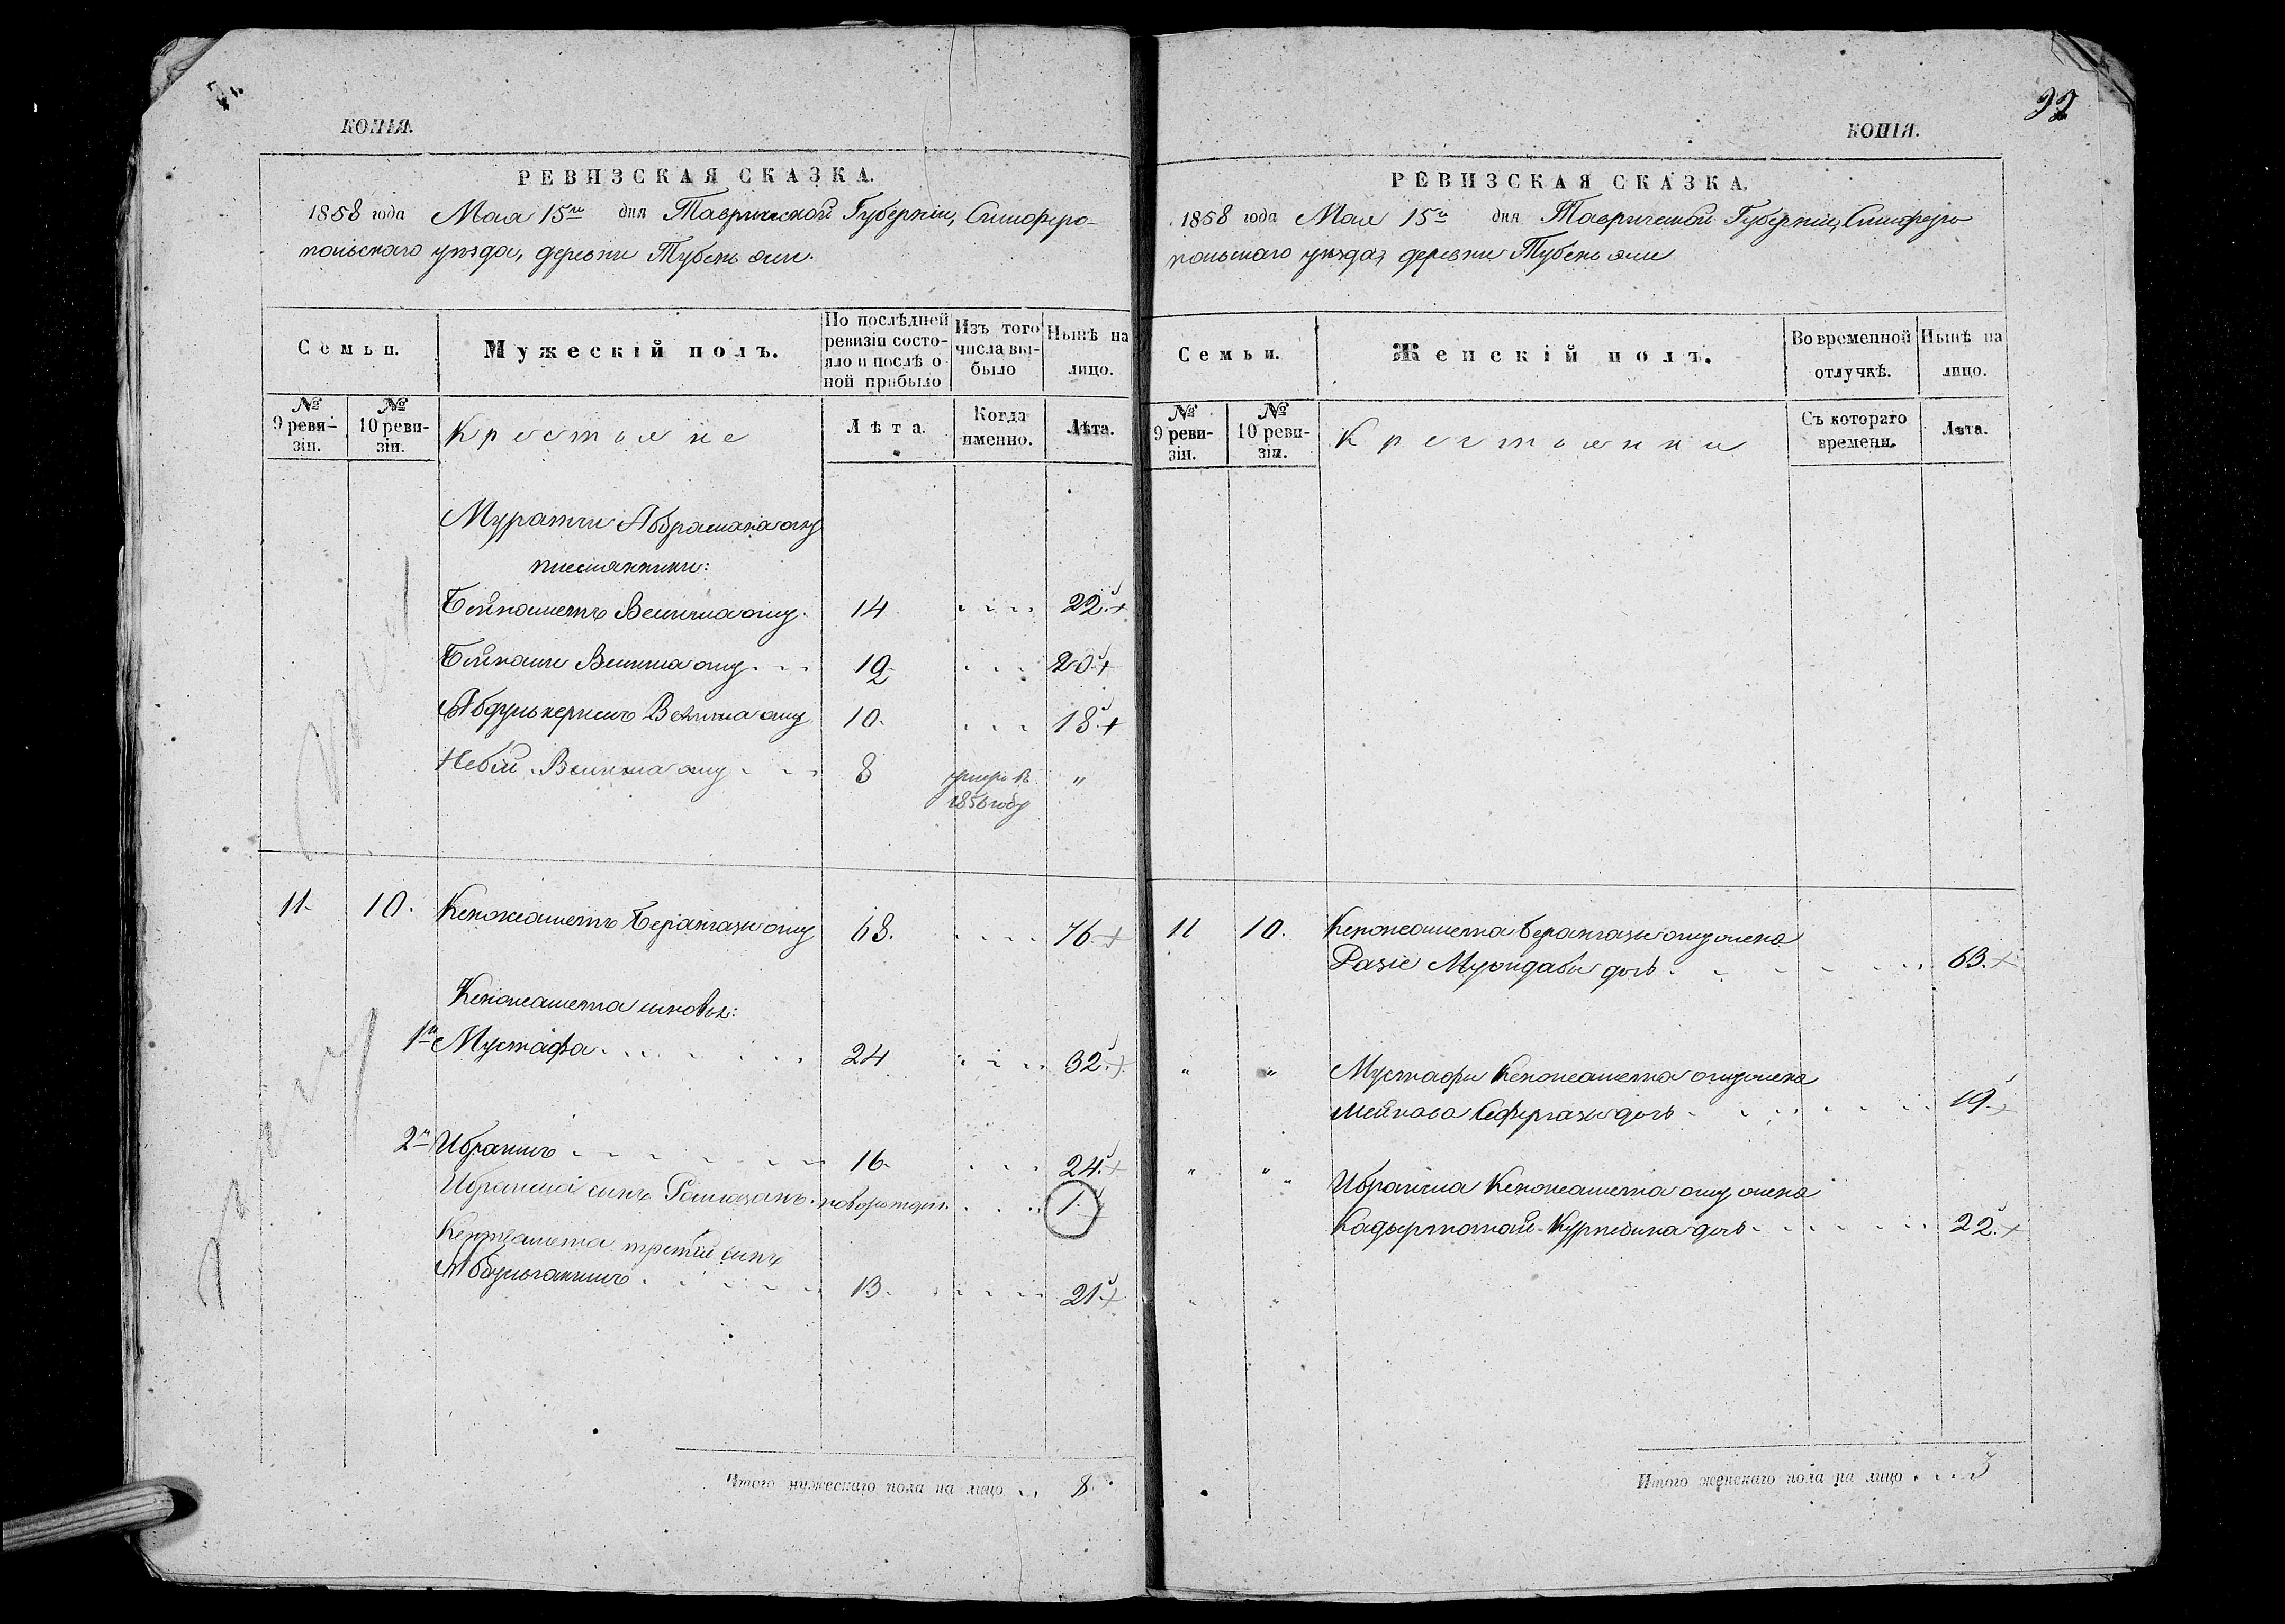 КОПІЯ.
РЕВИЗСКАЯ СКАЗКА.
1858 года Мая 15го дня Таврической Губерніи, Симферо-
польскаго уѣзда, деревни Тубень эли.
Семьи.
Мужескій полъ.
По послѣдней ревизіи состо-
яло и послѣ о-
ной прибыло
Изъ того
числа вы-
было
Нынѣ на
лицо.
№
9 реви-
зіи.
№
10 реви-
зіи.
Крестьяне
Лѣта.
Когда
именно.
Лѣта.
Абдрамана оглу
племянники:
Велиша оглу. 14 22.
Велиша оглу 12 20
Абдулькеримъ Велиша оглу 10. 18.
Небій Велиша оглу 8 умеръ въ "
1856 году
11. 10. Кенжеаметъ оглу 68. 76.
Кенжеамета сыновья:
1й Мустафа 24 32.
2й Ибраимъ 16. 24.
Ибраима сынъ Рамазанъ новорожден. 1.
Кенжеамета третій сынъ
13. 21.
Итого мужескаго пола на лицо 8.
32
КОПІЯ.
РЕВИЗСКАЯ СКАЗКА.
1858 года Мая 15го дня Таврической Губерніи, Симферо
польскаго уѣзда, деревни Тубень эли
Семьи.
Женскій полъ.
Во временной
отлучкѣ.
Нынѣ на
лицо.
№
9 реви-
зіи.
№
10 реви-
зіи.
Крестьянки
Съ котораго
времени.
Лѣта.
11 10. Кенжеамета оглу жена
дочь 63.
" " Мустафы Кенжеамета оглу жена
дочь 19.
" " Ибраима Кенжеамета оглу жена
дочь 22.
" "
Итого женскаго пола на лицо 3